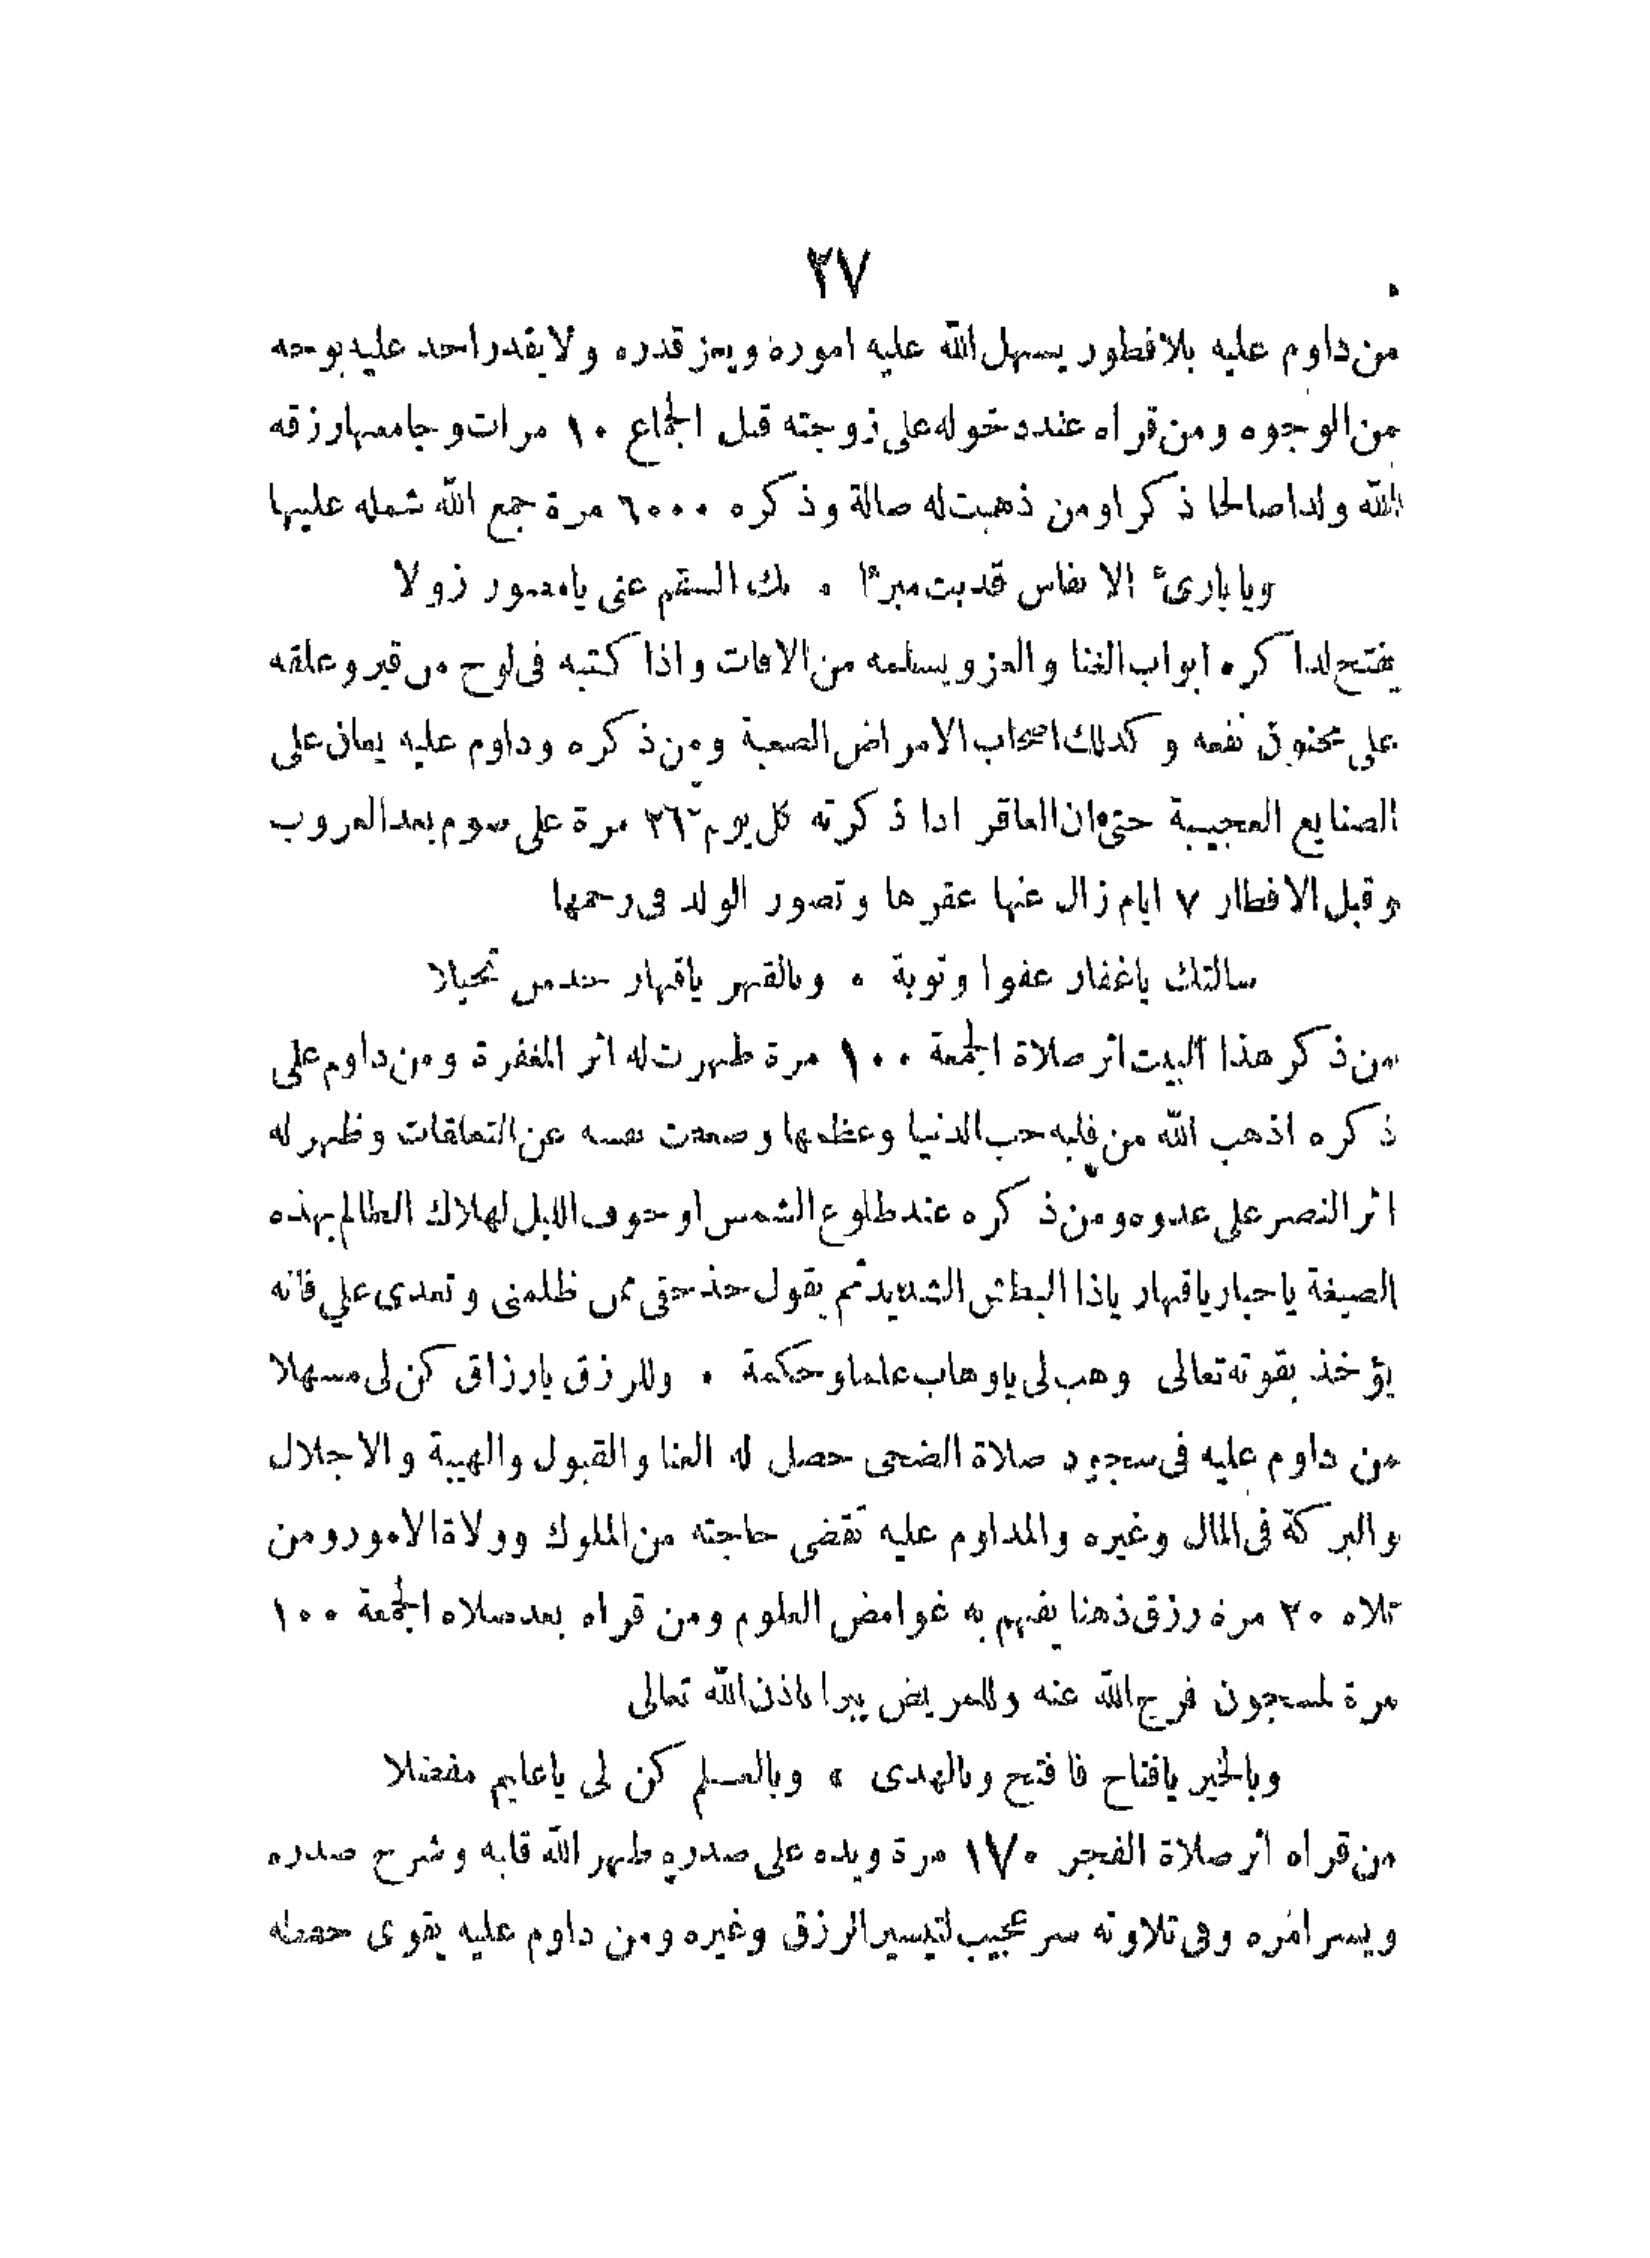 ٢٧
من داوم عليه بلا فطور يسهل الله عليه اموره ويعز قدره ولا يقدر احد عليه بوجه
من الوجوه ومن قراه عند دخوله على زوجته قبل الجماع ١٠ مرات وجامعها رزقه
الله ولدا صالحا ذكرا ومن ذهبت له ضالة وذكره ٦٠٠٠ مرة جمع الله شمله عليها
ويا بارئ الانفاس قد بت مبرءا • بك السقم عنى يا مصور زولا
يفتح لذاكره ابواب الغنا والعز ويسلمه من الافات واذا كتبه فى لوح من قير وعلقه
على مخنوق نفعه وكذلك اصحاب الامراض الصعبة ومن ذكره وداوم عليه يعان على
الصنايع العجيبة حتى ان العاقر اذا ذكرته كل يوم ٣٦٢ مرة على صوم بعد الغروب
وقبل الافطار ٧ ايام زال عنها عقرها وتصور الولد فى رحمها
سالتك يا غفار عفوا وتوبة • وبالقهر يا قهار خذ من تحيلا
من ذكر هذا البيت اثر صلاة الجمعة ١٠٠ مرة ظهرت له اثر المغفرة ومن داوم على
ذكره اذهب الله من قلبه حب الدنيا وعظمها وصعدت نفسه عن التعلقات وظهر له
اثر النصر على عدوه ومن ذكره عند طلوع الشمس او جوف الليل لهلاك الظالم بهذه
الصيغة يا جبار يا قهار يا ذا البطش الشديد ثم يقول خذ حقى ممن ظلمنى وتعدى علي فانه
يؤخذ بقوته تعالى وهب لى يا وهاب علما وحكمة • وللرزق يا رزاق كن لى مسهلا
من داوم عليه فى سجود صلاة الضحى حصل له الغنا والقبول والهيبة والاجلال
والبركة فى المال وغيره والمداوم عليه تقضى حاجته من الملوك وولاة الامور ومن
تلاه ٢٠ مرة رزق ذهنا يفهم به غوامض العلوم ومن قراه بعد صلاه الجمعة ١٠٠
مرة لمسجون فرج الله عنه وللمريض يبرا باذن الله تعالى
وبالخير يا فتاح فافتح وبالهدى • وبالعلم كن لى يا عليم مفضلا
من قراه اثر صلاة الفجر ١٧٠ مرة ويده على صدره طهر الله قلبه وشرح صدره
ويسر امره وفى تلاوته سر عجيب لتيسير الرزق وغيره ومن داوم عليه يقوى حفظه